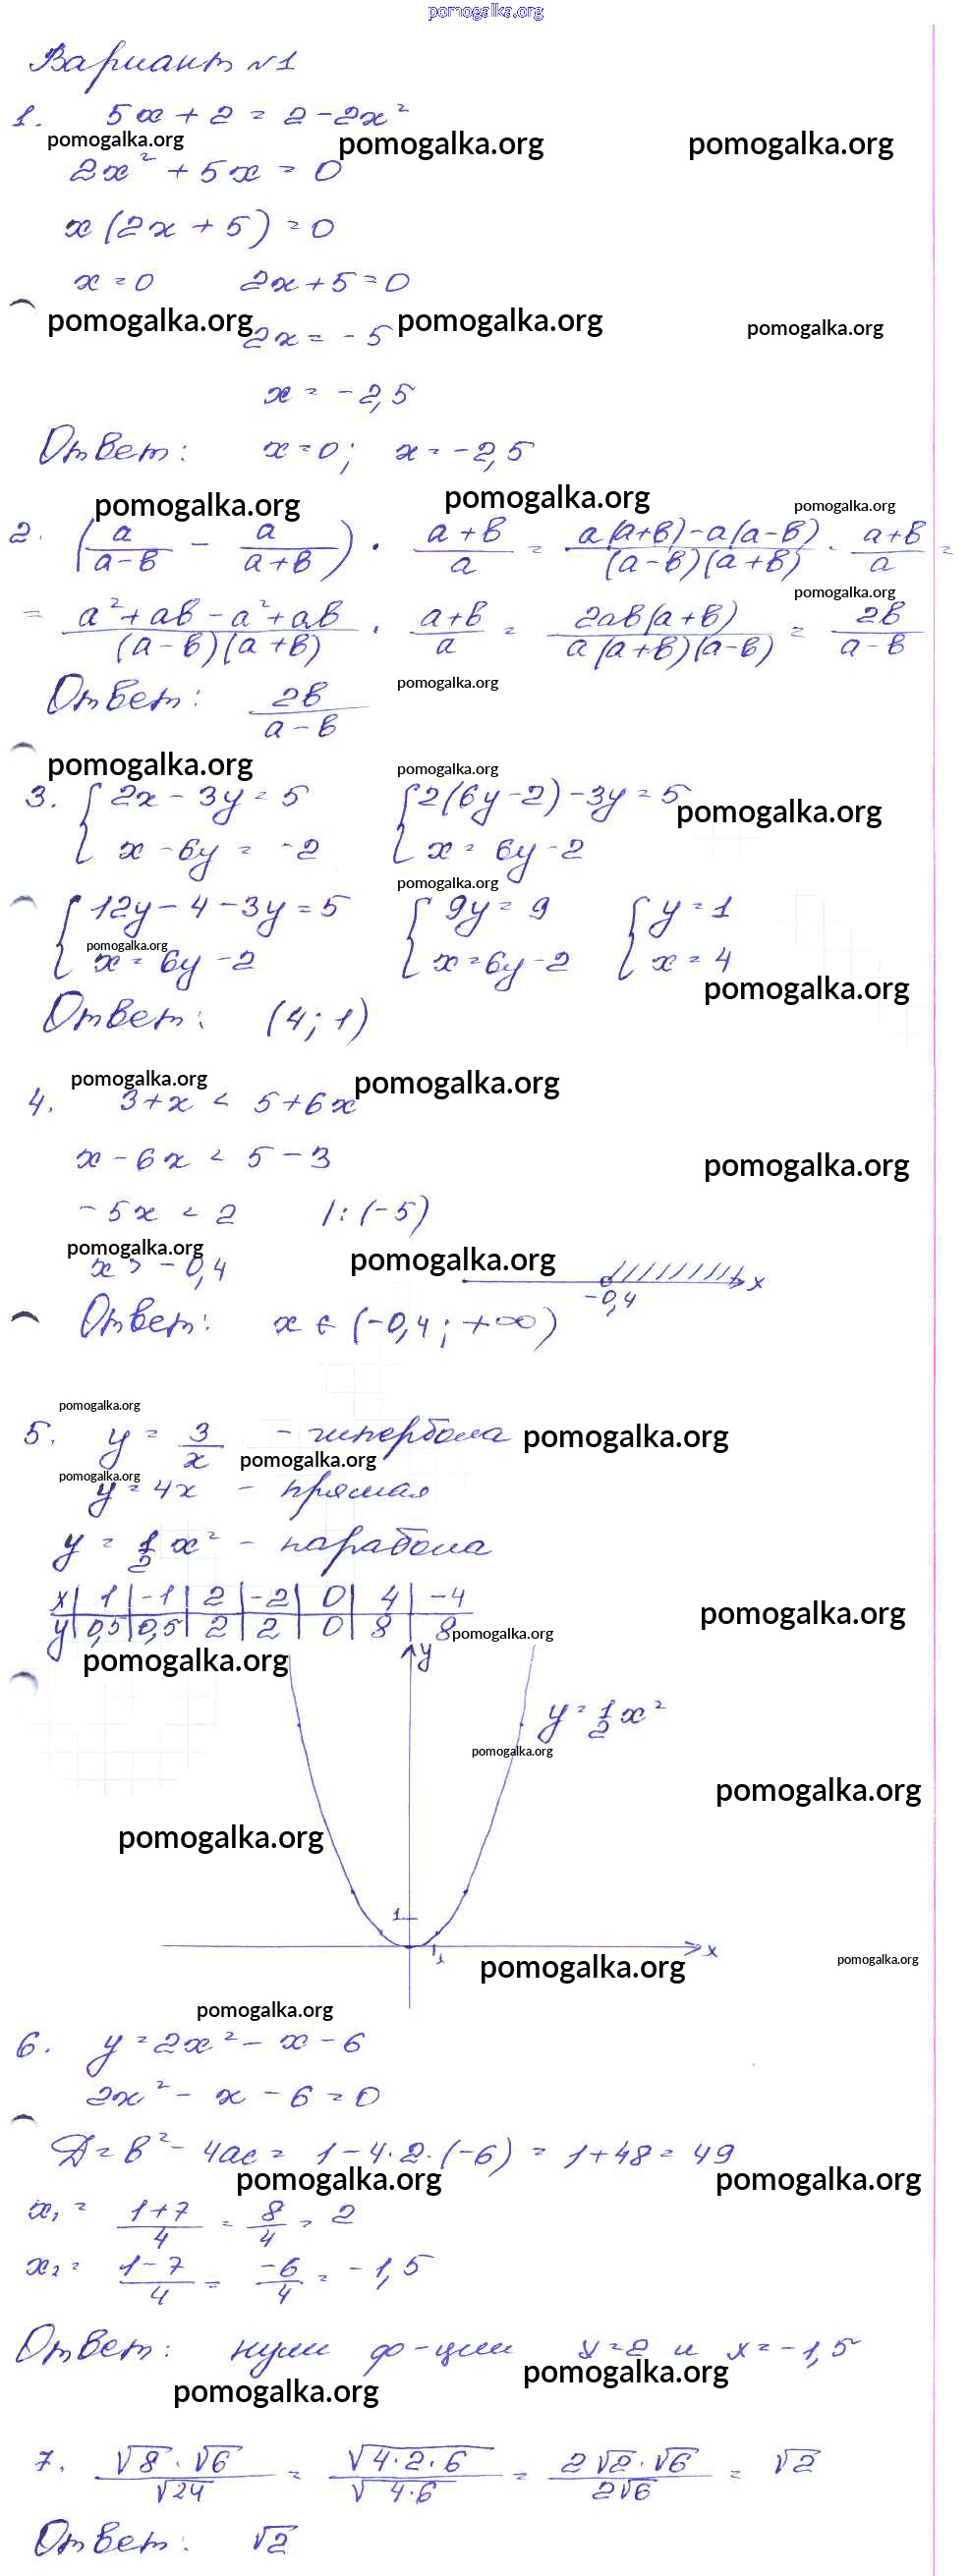 pomogalka.org
Вариант №1
1. 5x + 2 = 2 - 2x²
pomogalka.org pomogalka.org pomogalka.org
2x² + 5x = 0
x(2x + 5) = 0
x = 0 2x + 5 = 0
pomogalka.org pomogalka.org pomogalka.org
2x = -5
x = -2,5
Ответ: x = 0; x = -2,5
pomogalka.org pomogalka.org pomogalka.org
2. (a/(a-в) - a/(a+в)) · (a+в)/a = (a(a+в)-a(a-в))/((a-в)(a+в)) · (a+в)/a =
pomogalka.org
= (a²+aв-a²+aв)/((a-в)(a+в)) · (a+в)/a = 2aв(a+в)/(a(a+в)(a-в)) = 2в/(a-в)
Ответ: 2в/(a-в)
pomogalka.org
pomogalka.org pomogalka.org
3. { 2x - 3y = 5 { 2(6y-2) - 3y = 5
pomogalka.org
x - 6y = -2 x = 6y - 2
pomogalka.org
{ 12y - 4 - 3y = 5 { 9y = 9 { y = 1
pomogalka.org
x = 6y - 2 x = 6y - 2 x = 4
pomogalka.org
Ответ: (4; 1)
pomogalka.org pomogalka.org
4. 3 + x < 5 + 6x
x - 6x < 5 - 3
pomogalka.org
-5x < 2 |:(-5)
pomogalka.org pomogalka.org
x > -0,4
x
-0,4
Ответ: x ∈ (-0,4; +∞)
pomogalka.org
5. y = 3/x - гипербола
pomogalka.org
pomogalka.org
pomogalka.org
y = 4x - прямая
y = 1/2 x² - парабола
x | 1 | -1 | 2 | -2 | 0 | 4 | -4
pomogalka.org
y | 0,5 | 0,5 | 2 | 2 | 0 | 8 | 8
pomogalka.org
pomogalka.org
y
y = 1/2 x²
pomogalka.org
pomogalka.org
pomogalka.org
1
1
x
pomogalka.org pomogalka.org
pomogalka.org
6. y = 2x² - x - 6
2x² - x - 6 = 0
Д = в² - 4ac = 1 - 4·2·(-6) = 1 + 48 = 49
pomogalka.org pomogalka.org
x₁ = (1+7)/4 = 8/4 = 2
x₂ = (1-7)/4 = -6/4 = -1,5
Ответ: нули ф-ции x=2 и x=-1,5
pomogalka.org
pomogalka.org
7. (√8 · √6)/√24 = √(4·2·6)/√(4·6) = (2√2 · √6)/(2√6) = √2
Ответ: √2